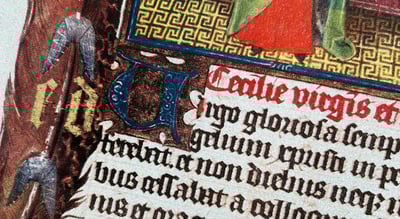 Cecilie virgis et
Uirgo gloriosa semp
gelium xpisti in pe
terebat. et non diebus neq; n
bus cessabat a colloqu
nus et ora